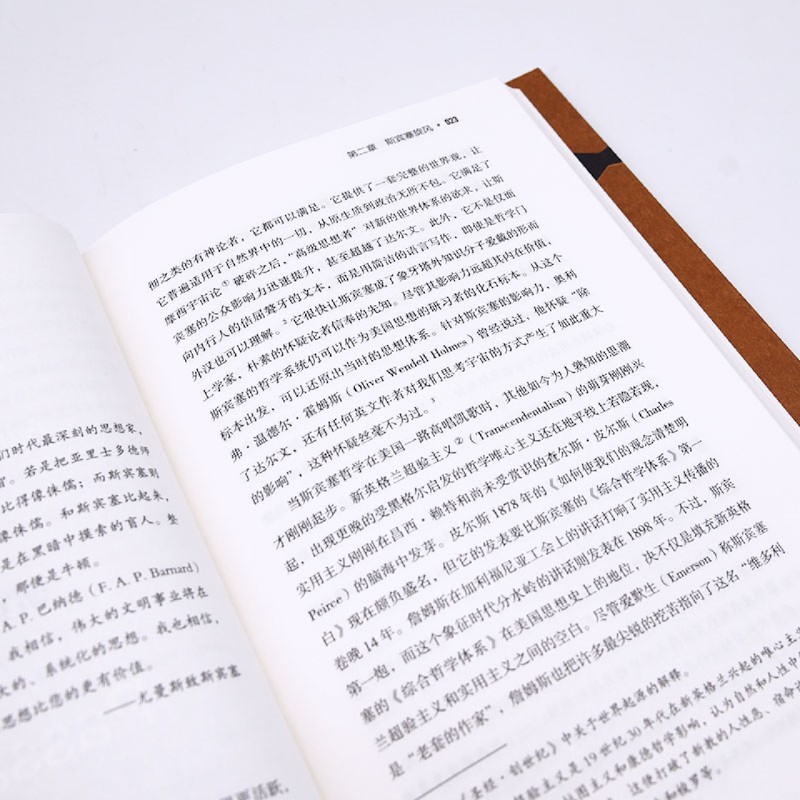 们时代最深刻的思想家,
若是把亚里士多德师
比得像侏儒;而斯宾塞则
像侏儒。和斯宾塞比起来,
是在黑暗中摸索的盲人。整
,那便是牛顿。
A. P. 巴纳德(F. A. P. Barnard)
我相信,伟大的文明事业将在
大的、系统化的思想。我也相信,
思想比您的更有价值。
——尤曼斯致斯宾塞
第二章 斯宾塞旋风 • 023
彻之类的有神论者,它都可以满足。它提供了一套完整的世界观,让
它普遍适用于自然界中的一切,从原生质到政治无所不包。它满足了
摩西宇宙论①破碎之后,“高级思想者”对新的世界体系的欲求,让斯
宾塞的公众影响力迅速提升,甚至超越了达尔文。此外,它不是仅面
向内行人的佶屈聱牙的文本,而是用简洁的语言写作,即使是哲学门
外汉也可以理解。2 它很快让斯宾塞成了象牙塔外知识分子爱戴的形而
上学家,朴素的怀疑论者信奉的先知。尽管其影响力远超其内在价值,
斯宾塞的哲学系统仍可以作为美国思想的研习者的化石标本。从这个
标本出发,可以还原出当时的思想体系。针对斯宾塞的影响力,奥利
弗·温德尔·霍姆斯(Oliver Wendell Holmes)曾经说过,他怀疑“除
了达尔文,还有任何英文作者对我们思考宇宙的方式产生了如此重大
的影响”,这种怀疑丝毫不为过。3
当斯宾塞哲学在美国一路高唱凯歌时,其他如今为人熟知的思潮
才刚刚起步。新英格兰超验主义②(Transcendentalism)的萌芽刚刚兴
起,出现更晚的受黑格尔启发的哲学唯心主义还在地平线上若隐若现,
实用主义刚刚在昌西·赖特和尚未受赏识的查尔斯·皮尔斯(Charles
Peirce)的脑海中发芽。皮尔斯 1878 年的《如何使我们的观念清楚明
白》现在颇负盛名,但它的发表要比斯宾塞的《综合哲学体系》第一
卷晚 14 年。詹姆斯在加利福尼亚工会上的讲话打响了实用主义传播的
第一炮,而这个象征时代分水岭的讲话则发表在 1898 年。不过,斯宾
塞的《综合哲学体系》在美国思想史上的地位,决不仅是填充新英格
兰超验主义和实用主义之间的空白。尽管爱默生(Emerson)称斯宾塞
是“老套的作家”,詹姆斯也把许多最尖锐的挖苦指向了这名“维多利
《圣经·创世纪》中关于世界起源的解释。
超验主义是 19 世纪 30 年代在新英格兰兴起的唯心主
和康德哲学影响,认为自然和人性中
这便打破了新教的人性恶、宿命
和梭罗等。